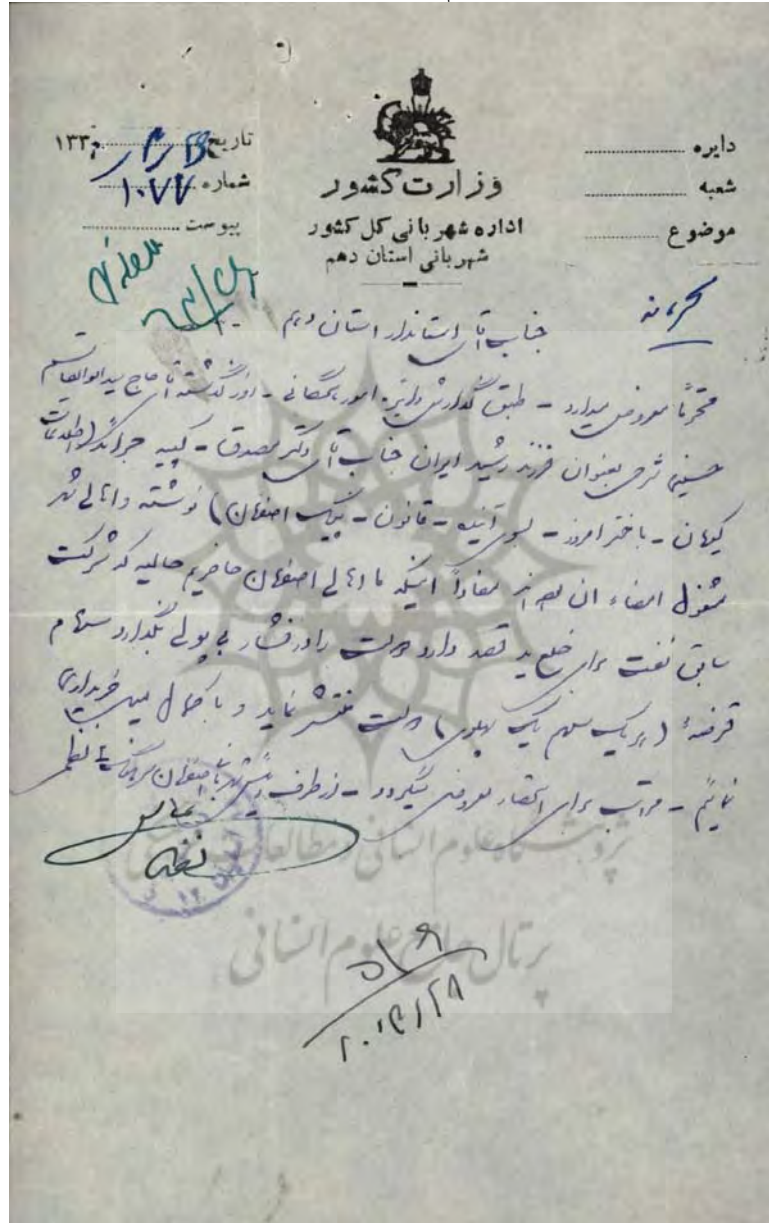 دایره ..............
شعبه ..............
موضوع ..............
وزارت کشور
اداره شهربانی کل کشور
شهربانی استان دهم
تاریخ ۱۳۳۰
شماره ۱۰۷۷
پیوست ..............
محرمانه
جناب آقای استاندار استان دهم
محترماً معروض میدارد - طبق گزارش دایره امور همگانی - روز گذشته آقای حاج سید ابوالقاسم
حسینی شرحی بعنوان فرزند رشید ایران جناب آقای دکتر مصدق - کپیه جراید (اطلاعات
کیهان - باختر امروز - بسوی آتیه - قانون - اصفهان) نوشته و اهالی شهر
مشغول امضاء آن مفاداً اینکه ما اهالی اصفهان حاضریم حالیه که شرکت
سابق نفت برای خلع ید قصد دارد دولت را در فشار بی پولی بگذارد سهام
قرضه (هر یک سهم یک پهلوی) دولت منتشر نماید و با کمال میل خریداری
نمائیم - مراتب برای استحضار معروض میگردد - از طرف رئیس شهربانی اصفهان سرهنگ
پژوهشگاه علوم انسانی و مطالعات فرهنگی
پرتال جامع علوم انسانی